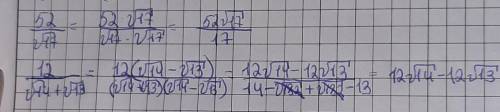 52/√17 = 52√17/√17·√17 = 52√17/17
12/√14+√13 = 12(√14-√13)/(√14+√13)(√14-√13) = 12√14-12√13/14-√182+√182-13 = 12√14-12√13